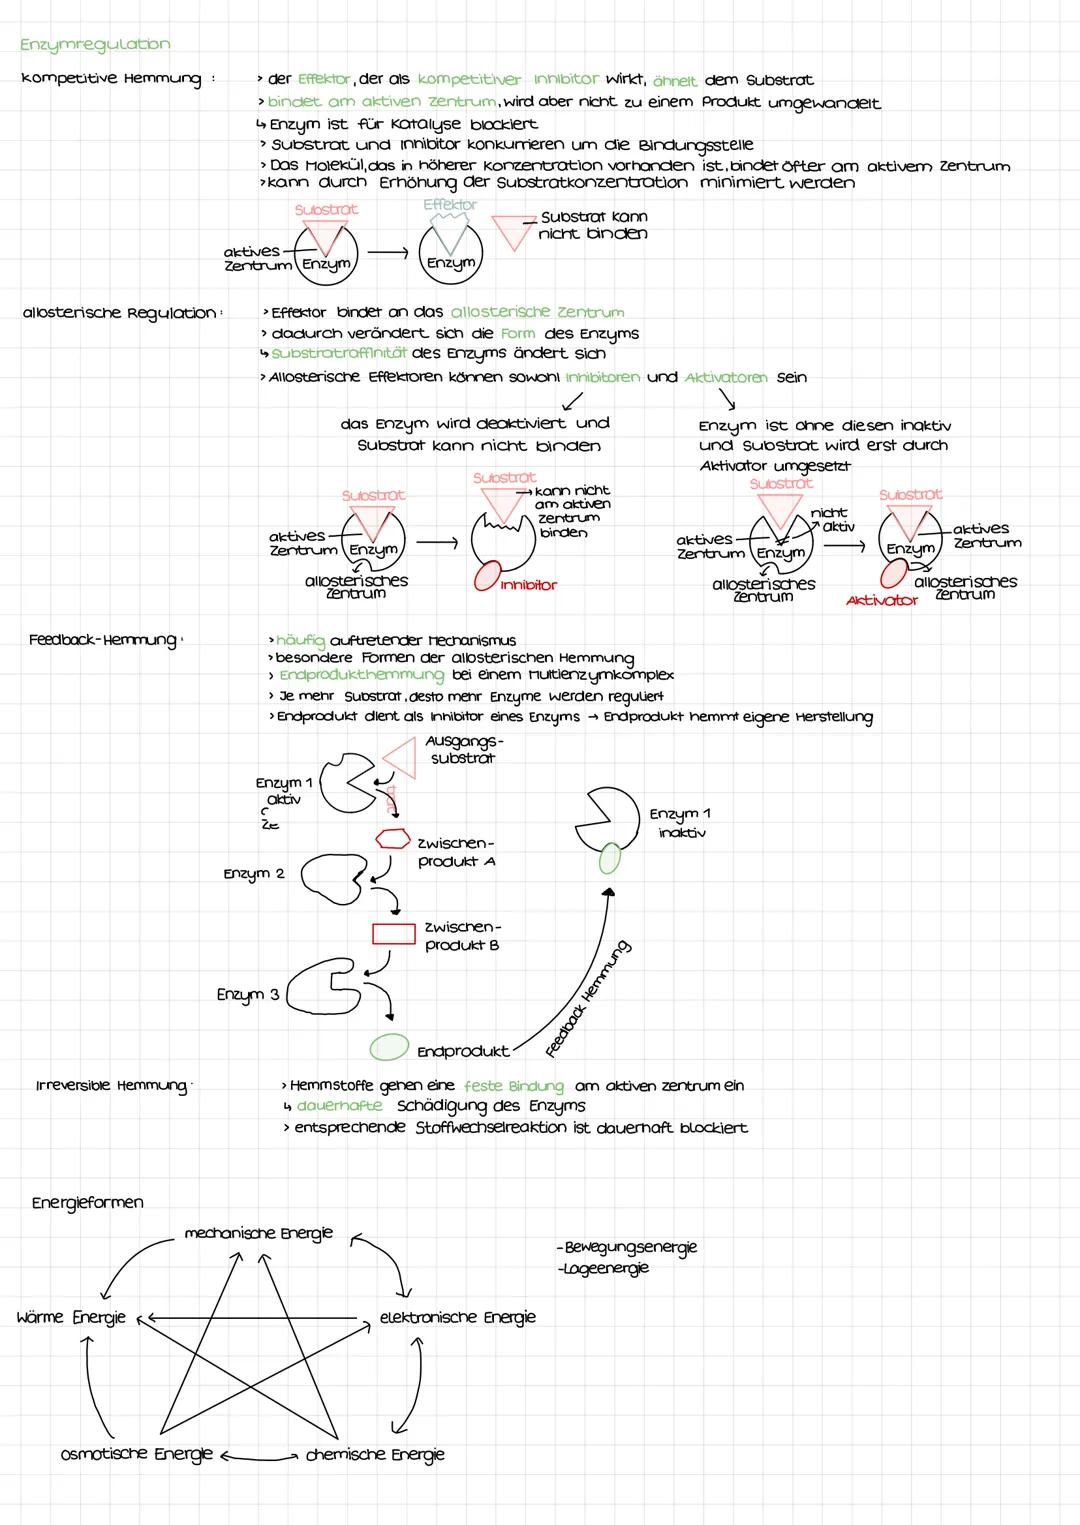 Enzymregulation
kompetitive Hemmung :
> der Effektor, der als kompetitiver Inhibitor wirkt, ähnelt dem Substrat
> bindet am aktiven Zentrum, wird aber nicht zu einem Produkt umgewandelt
↳ Enzym ist für Katalyse blockiert
> Substrat und Inhibitor konkurrieren um die Bindungsstelle
> Das Molekül, das in höherer Konzentration vorhanden ist, bindet öfter am aktivem Zentrum
> kann durch Erhöhung der Substratkonzentration minimiert werden
Substrat
Effektor
Substrat kann
nicht binden
aktives
Zentrum
Enzym
Enzym
allosterische Regulation :
> Effektor bindet an das allosterische Zentrum
> dadurch verändert sich die Form des Enzyms
↳ Substrataffinität des Enzyms ändert sich
> Allosterische Effektoren können sowohl Inhibitoren und Aktivatoren sein
das Enzym wird deaktiviert und
Substrat kann nicht binden
Enzym ist ohne diesen inaktiv
und Substrat wird erst durch
Aktivator umgesetzt
Substrat
aktives
Zentrum
Enzym
allosterisches
Zentrum
Substrat
kann nicht
am aktiven
Zentrum
binden
Inhibitor
Substrat
nicht
aktiv
aktives
Zentrum
Enzym
allosterisches
Zentrum
Substrat
aktives
Zentrum
Enzym
allosterisches
Zentrum
Aktivator
Feedback-Hemmung :
> häufig auftretender Mechanismus
> besondere Formen der allosterischen Hemmung
> Endprodukthemmung bei einem Multienzymkomplex
> Je mehr Substrat, desto mehr Enzyme werden reguliert
> Endprodukt dient als Inhibitor eines Enzyms → Endprodukt hemmt eigene Herstellung
Ausgangs-
substrat
Enzym 1
aktiv
Ze
Zwischen-
produkt A
Enzym 2
Zwischen-
produkt B
Enzym 3
Endprodukt
Feedback Hemmung
Enzym 1
inaktiv
Irreversible Hemmung :
> Hemmstoffe gehen eine feste Bindung am aktiven Zentrum ein
↳ dauerhafte Schädigung des Enzyms
> entsprechende Stoffwechselreaktion ist dauerhaft blockiert
Energieformen
mechanische Energie
-Bewegungsenergie
-Lageenergie
Wärme Energie
elektronische Energie
osmotische Energie
chemische Energie